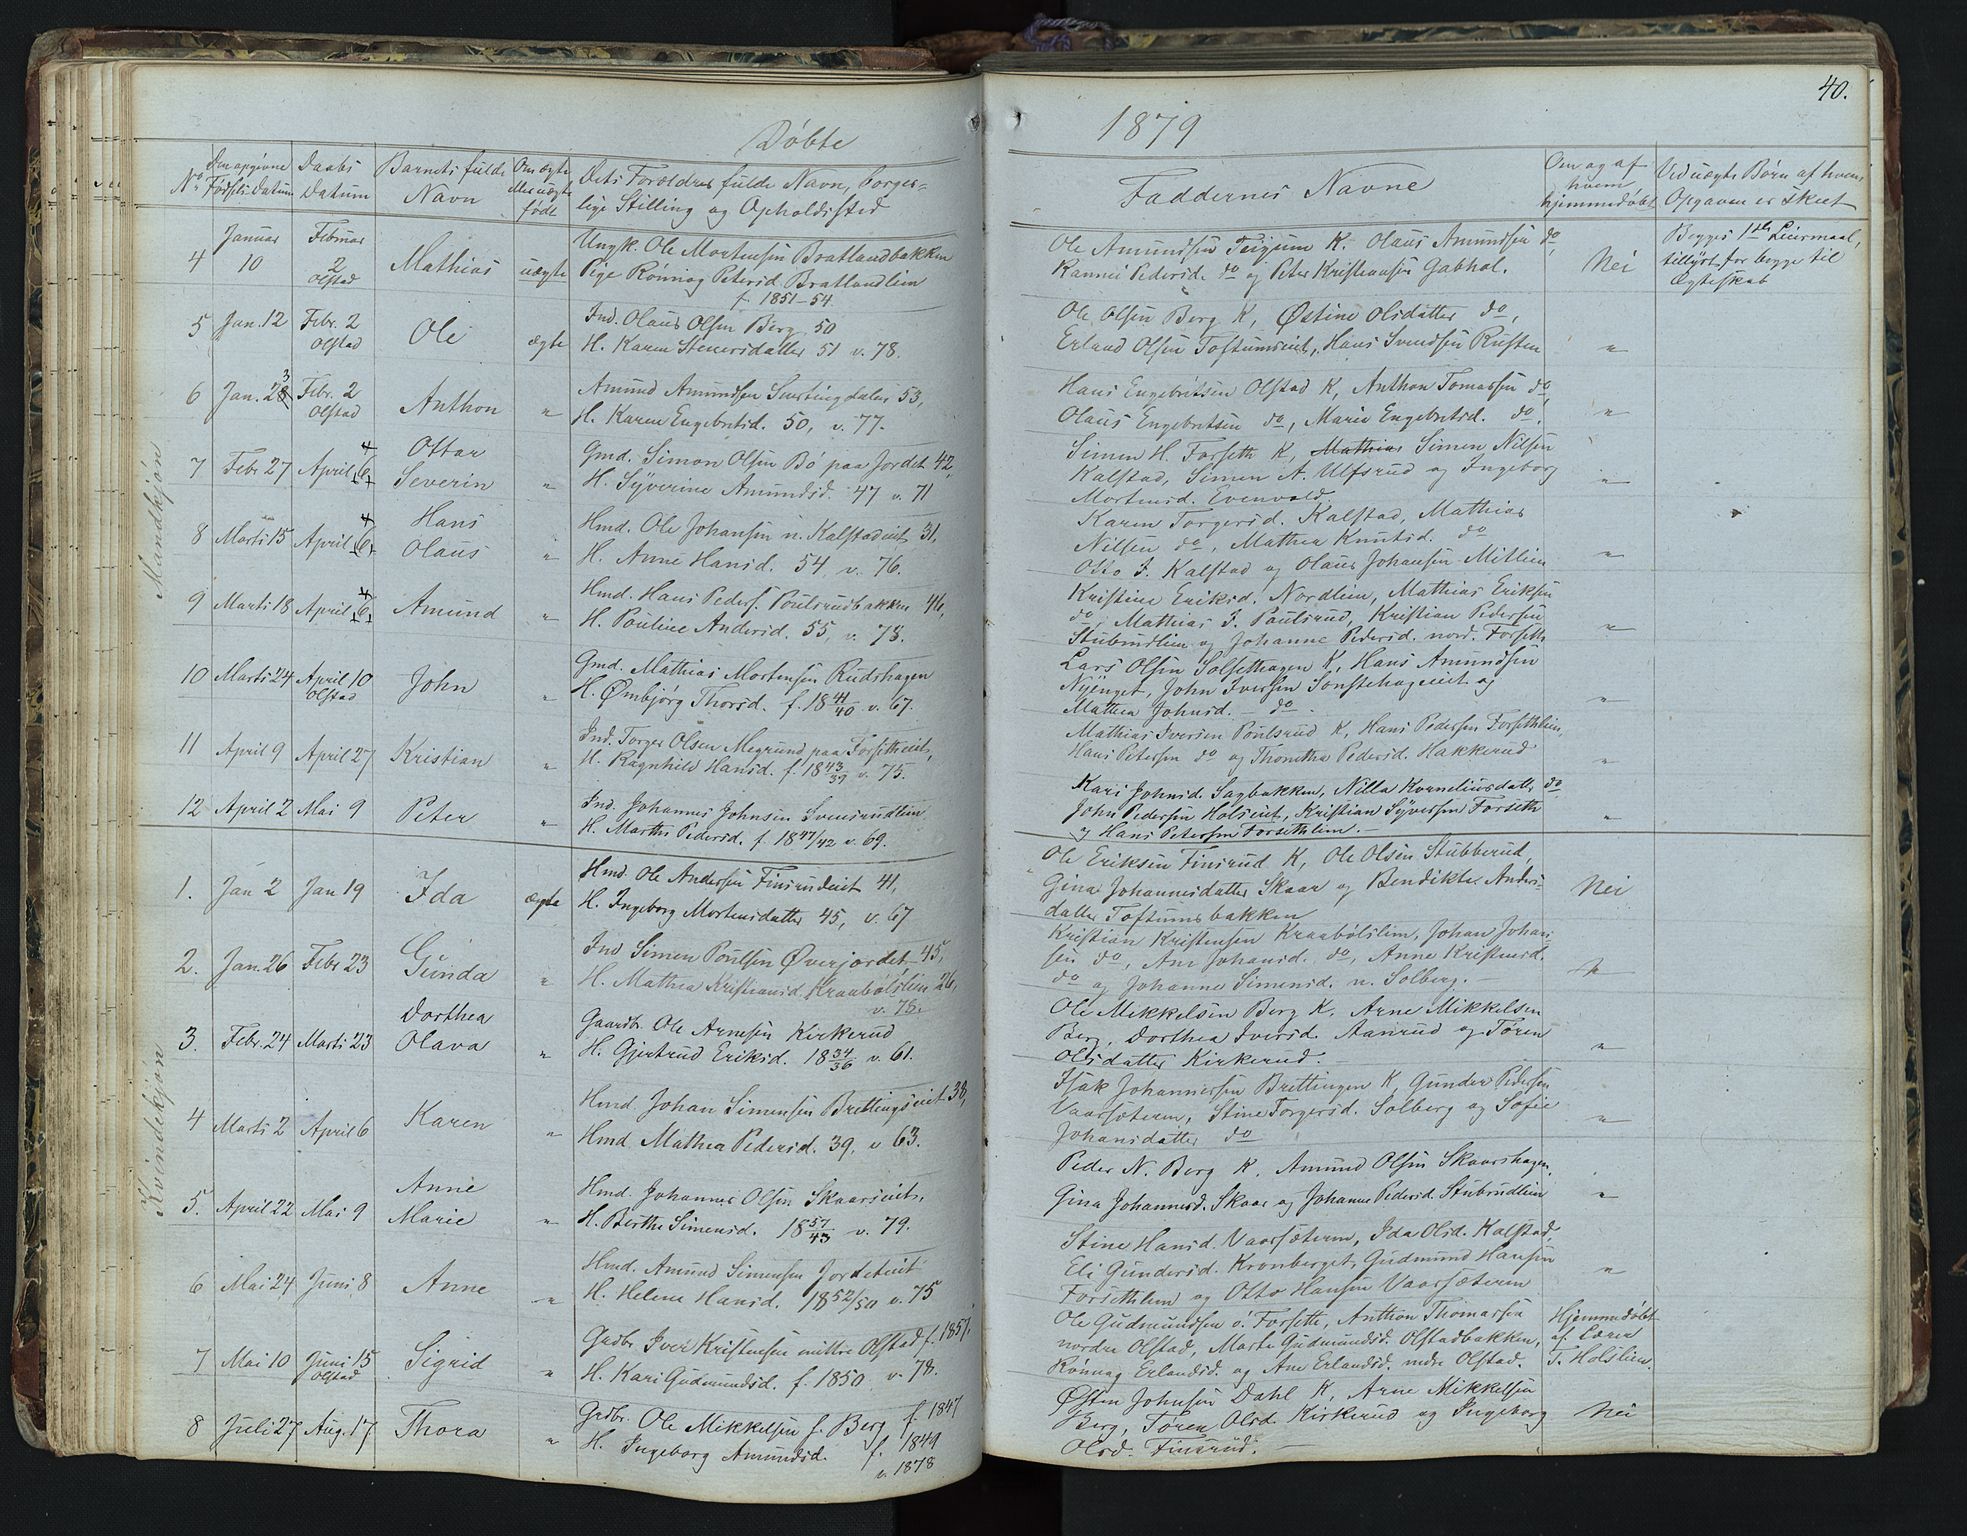 40.
Døbte
1879
No
Den opgivne Fødsels Datum
Daabs Datum
Barnets fulde Navn
Om ægte eller uægte født
Dets Forældres fulde Navn, borgerlige Stilling og Opholdssted
Faddernes Navne
Om og af hvem hjemmedøbt
Ved uægte Børn af hvem Opgaven er skeet
Mandkjøn
4 Januar 10 Februar 2 Olstad Mathias uægte
Ungk. Ole Mortensen Bratlandbakken
Pige Rønnog Petersd. Bratlandlien
f. 1851-54
Ole Amundsen Teigum K. Olaus Amundsen do,
Rannei Pedersd. do og Peter Kristiansen Gabhol.
Nei
Begges 1ste Leiermaal,
tillyst for begge til
Ægteskab
5 Jan. 12 Febr. 2 Olstad Ole ægte
Ind. Olaus Olsen Berg 50
H. Karen Steversdatter 51 v. 78.
Ole Olsen Berg K, Østine Olsdatter do,
Erland Olsen Toftumseiet, Hans Svendsen Rusten
"
6 Jan. 28 3 Febr. 2 Olstad Anthon "
Amund Amundsen Svartingdalen 53,
H. Karen Engebretsd. 50, v. 77.
Hans Engebretsen Olstad K, Anthon Tomassen do,
Olaus Engebretsen do, Marie Engebretsd. do.
"
7 Febr 27 April 6 4 Ottar Severin "
Gmd. Simon Olsen Bø paa Jordet 42,
H. Syverine Amundsd. 47 v. 71
Simen H. Forseth K, Mathias Simen Nilsen
Kalstad, Simen A. Ulfsrud og Ingeborg
Mortensd. Evenvold.
"
8 Marti 15 April 6 4 Hans Olaus "
Hmd. Ole Johansen n. Kalstadeiet 31,
H. Anne Hansd. 54 v. 76.
Karen Torgersd. Kalstad, Mathias
Nilsen do, Mathea Knutsd. do
Otto J. Kalstad og Olaus Johansen Mitlien
"
9 Marti 18 April 6 4 Amund "
Hmd. Hans Peders. Poulsrudbakken 46,
H. Pouline Andersd. 55, v. 78.
Kristine Eriksd. Nordlien, Mathias Eriksen
do, Mathias I. Poulsrud, Kristian Pedersen
Stubrudlien og Johanne Pedersd. nord. Forseth
"
10 Marti 24 April 10 Olstad John "
Gmd. Mathias Mortensen Rudshagen
H. Ømbjørg Thorsd. f. 18 41/40 v. 67.
Lars Olsen Solsethagen K, Hans Amundsen
Nyenget, John Iversen Sonstehageeiet og
Mathea Johnsd. do.
"
11 April 9 April 27 Kristian "
Ind. Torger Olsen Megrund paa Forsetheiet,
H. Ragnhild Hansd. f. 18 43/39 v. 75.
Mathias Iversen Poulsrud K, Hans Pedersen Forsethlien,
Hans Petersen do og Thonetha Pedersd. Hakkerud
"
12 April 2 Mai 9 Peter "
Ind. Johannes Johnsen Svensrudlien
H. Marthe Pedersd. f. 1847/42 v. 69.
Kari Johnsd. Sagbakken, Nilla Korneliusdatt. do
John Pedersen Holseiet, Kristian Syversen Forseth
og Hans Petersen Forsethlien. -
"
Kvindekjøn
1. Jan 2 Jan 19 Ida ægte
Hmd. Ole Andersen Finsrudeiet 41,
H. Ingeborg Mortensdatter 45, v. 67
Ole Eriksen Finsrud K, Ole Olsen Stubberud,
Gina Johannesdatter Skaar og Bendikte Anders-
datter Toftumsbakken
Nei
2. Jan. 26 Febr 23 Gunda "
Ind Simen Poulsen Øverjordet 45,
H. Mathea Kristiansd. Kraabølslien 26,
v. 78.
Kristian Kristensen Kraabølslien, Johan Johan-
sen do, Ane Johansd. do, Anne Kristensd.
do og Johanne Simensd. n. Solberg.
"
3. Febr. 24 Marti 23 Dorthea Olava "
Gaardbr. Ole Arnesen Kirkerud
H. Gjertrud Eriksd. 18 34/36 v. 61.
Ole Mikkelsen Berg K, Arne Mikkelsen
Berg, Dorthea Iversd. Aanrud og Tøren
Olsdatter Kirkerud.
"
4 Marti 2 April 6 Karen "
Hmd. Johan Simensen Brettingseiet 38,
Hmd Mathea Pedersd. 39, v 63.
Isak Johannessen Brettingen K, Gunder Pedersen
Vaarsæteren, Stine Torgersd. Solberg og Sofie
Johansdatter do
"
5. April 22 Mai 9 Anne Marie "
Hmd. Johannes Olsen Skaarseiet,
H. Berthe Simensd. 18 57/43 v. 79.
Peder N. Berg K. Amund Olsen Skaarshagen,
Gina Johannesd. Skaar og Johanne Pedersd. Stubrudlien
"
6 Mai 24 Juni 8 Anne "
Hmd. Amund Simensen Jordeteiet
H. Helene Hansd. 1852/50 v. 75
Stine Hansd. Vaarsæteren, Ida Olsd. Kalstad,
Eli Gundersd. Kronberget, Gudmund Hansen
Forsethlien og Otto Hansen Vaarsæteren
"
7 Mai 10 Juni 15 Olstad Sigrid "
Grdbr. Iver Kristensen mittre Olstad f. 1851,
H. Kari Gudmundsd. f. 1850 v. 78.
Ole Gudmundsen ø. Forseth, Anthon Thomassen
nordre Olstad, Marte Gudmundsd. Olstadbakken,
Rønnog Erlandsd. og Ane Erlandsd. nedre Olstad.
Hjemmedøbt
af Lærer
T. Holslien.
8 Juli 27 Aug. 17 Thora "
Grdbr. Ole Mikkelsen s. Berg f. 1847
H. Ingeborg Amundsd. f. 1849
v. 1878
Østen Johnsen Dahl K, Arne Mikkelsen
Berg, Tøren Olsd. Kirkerud og Ingeborg
Olsd. Finsrud. -
Nei